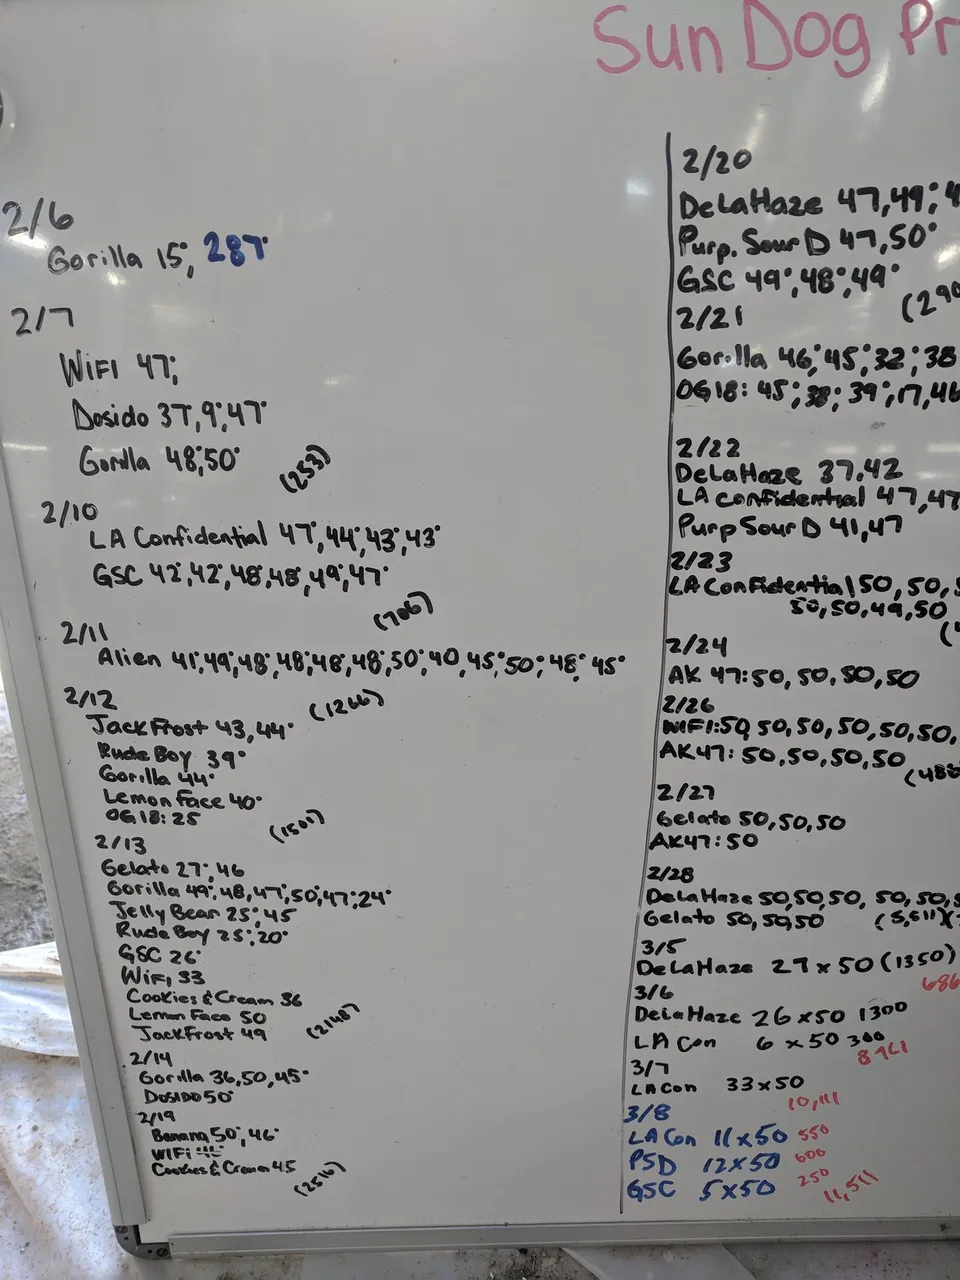 Sun Dog Pr
2/6
Gorilla 15, 287
2/7
WiFi 47,
Dosido 37, 9, 47
Gorilla 48, 50
(253)
2/10
LA Confidential 47, 44, 43, 43
GSC 42, 42, 48, 48, 49, 47
(706)
2/11
Alien 41, 49, 48, 48, 48, 48, 50, 40, 45, 50, 48, 45
(1266)
2/12
Jack Frost 43, 44
Rude Boy 39
Gorilla 44
Lemon Face 40
OG18: 25
(1501)
2/13
Gelato 27, 46
Gorilla 49, 48, 47, 50, 47, 24
Jelly Bear 25, 45
Rude Boy 25, 20
GSC 26
WiFi, 33
Cookies & Cream 36
Lemon Face 50
Jack Frost 49
(2148)
2/14
Gorilla 36, 50, 45
DOSIDO 50
2/19
Banana 50, 46
WIFI
Cookies & Cream 45
(2516)
2/20
DeLaHaze 47, 49, 4
Purp. Sour D 47, 50
GSC 49, 48, 49
(290
2/21
Gorilla 46, 45, 32, 38
OG18: 45, 38, 39, 17, 46
2/22
DeLaHaze 37, 42
LA confidential 47, 47
Purp Sour D 41, 47
2/23
LA Confidential 50, 50,
50, 50, 49, 50
2/24
AK 47: 50, 50, 50, 50
2/26
WIFI: 50, 50, 50, 50, 50, 50,
AK47: 50, 50, 50, 50
(488
2/27
Gelato 50, 50, 50
AK47: 50
2/28
DeLaHaze 50, 50, 50, 50, 50,
Gelato 50, 50, 50 (5,511)(
3/5
DeLaHaze 27 x 50 (1350)
686
3/6
DeLaHaze 26 x 50 1300
LA Con 6 x 50 300
8461
3/7
LA Con 33 x 50
10,111
3/8
LA Con 11 x 50 550
PSD 12 x 50 600
GSC 5 x 50 250
11,511